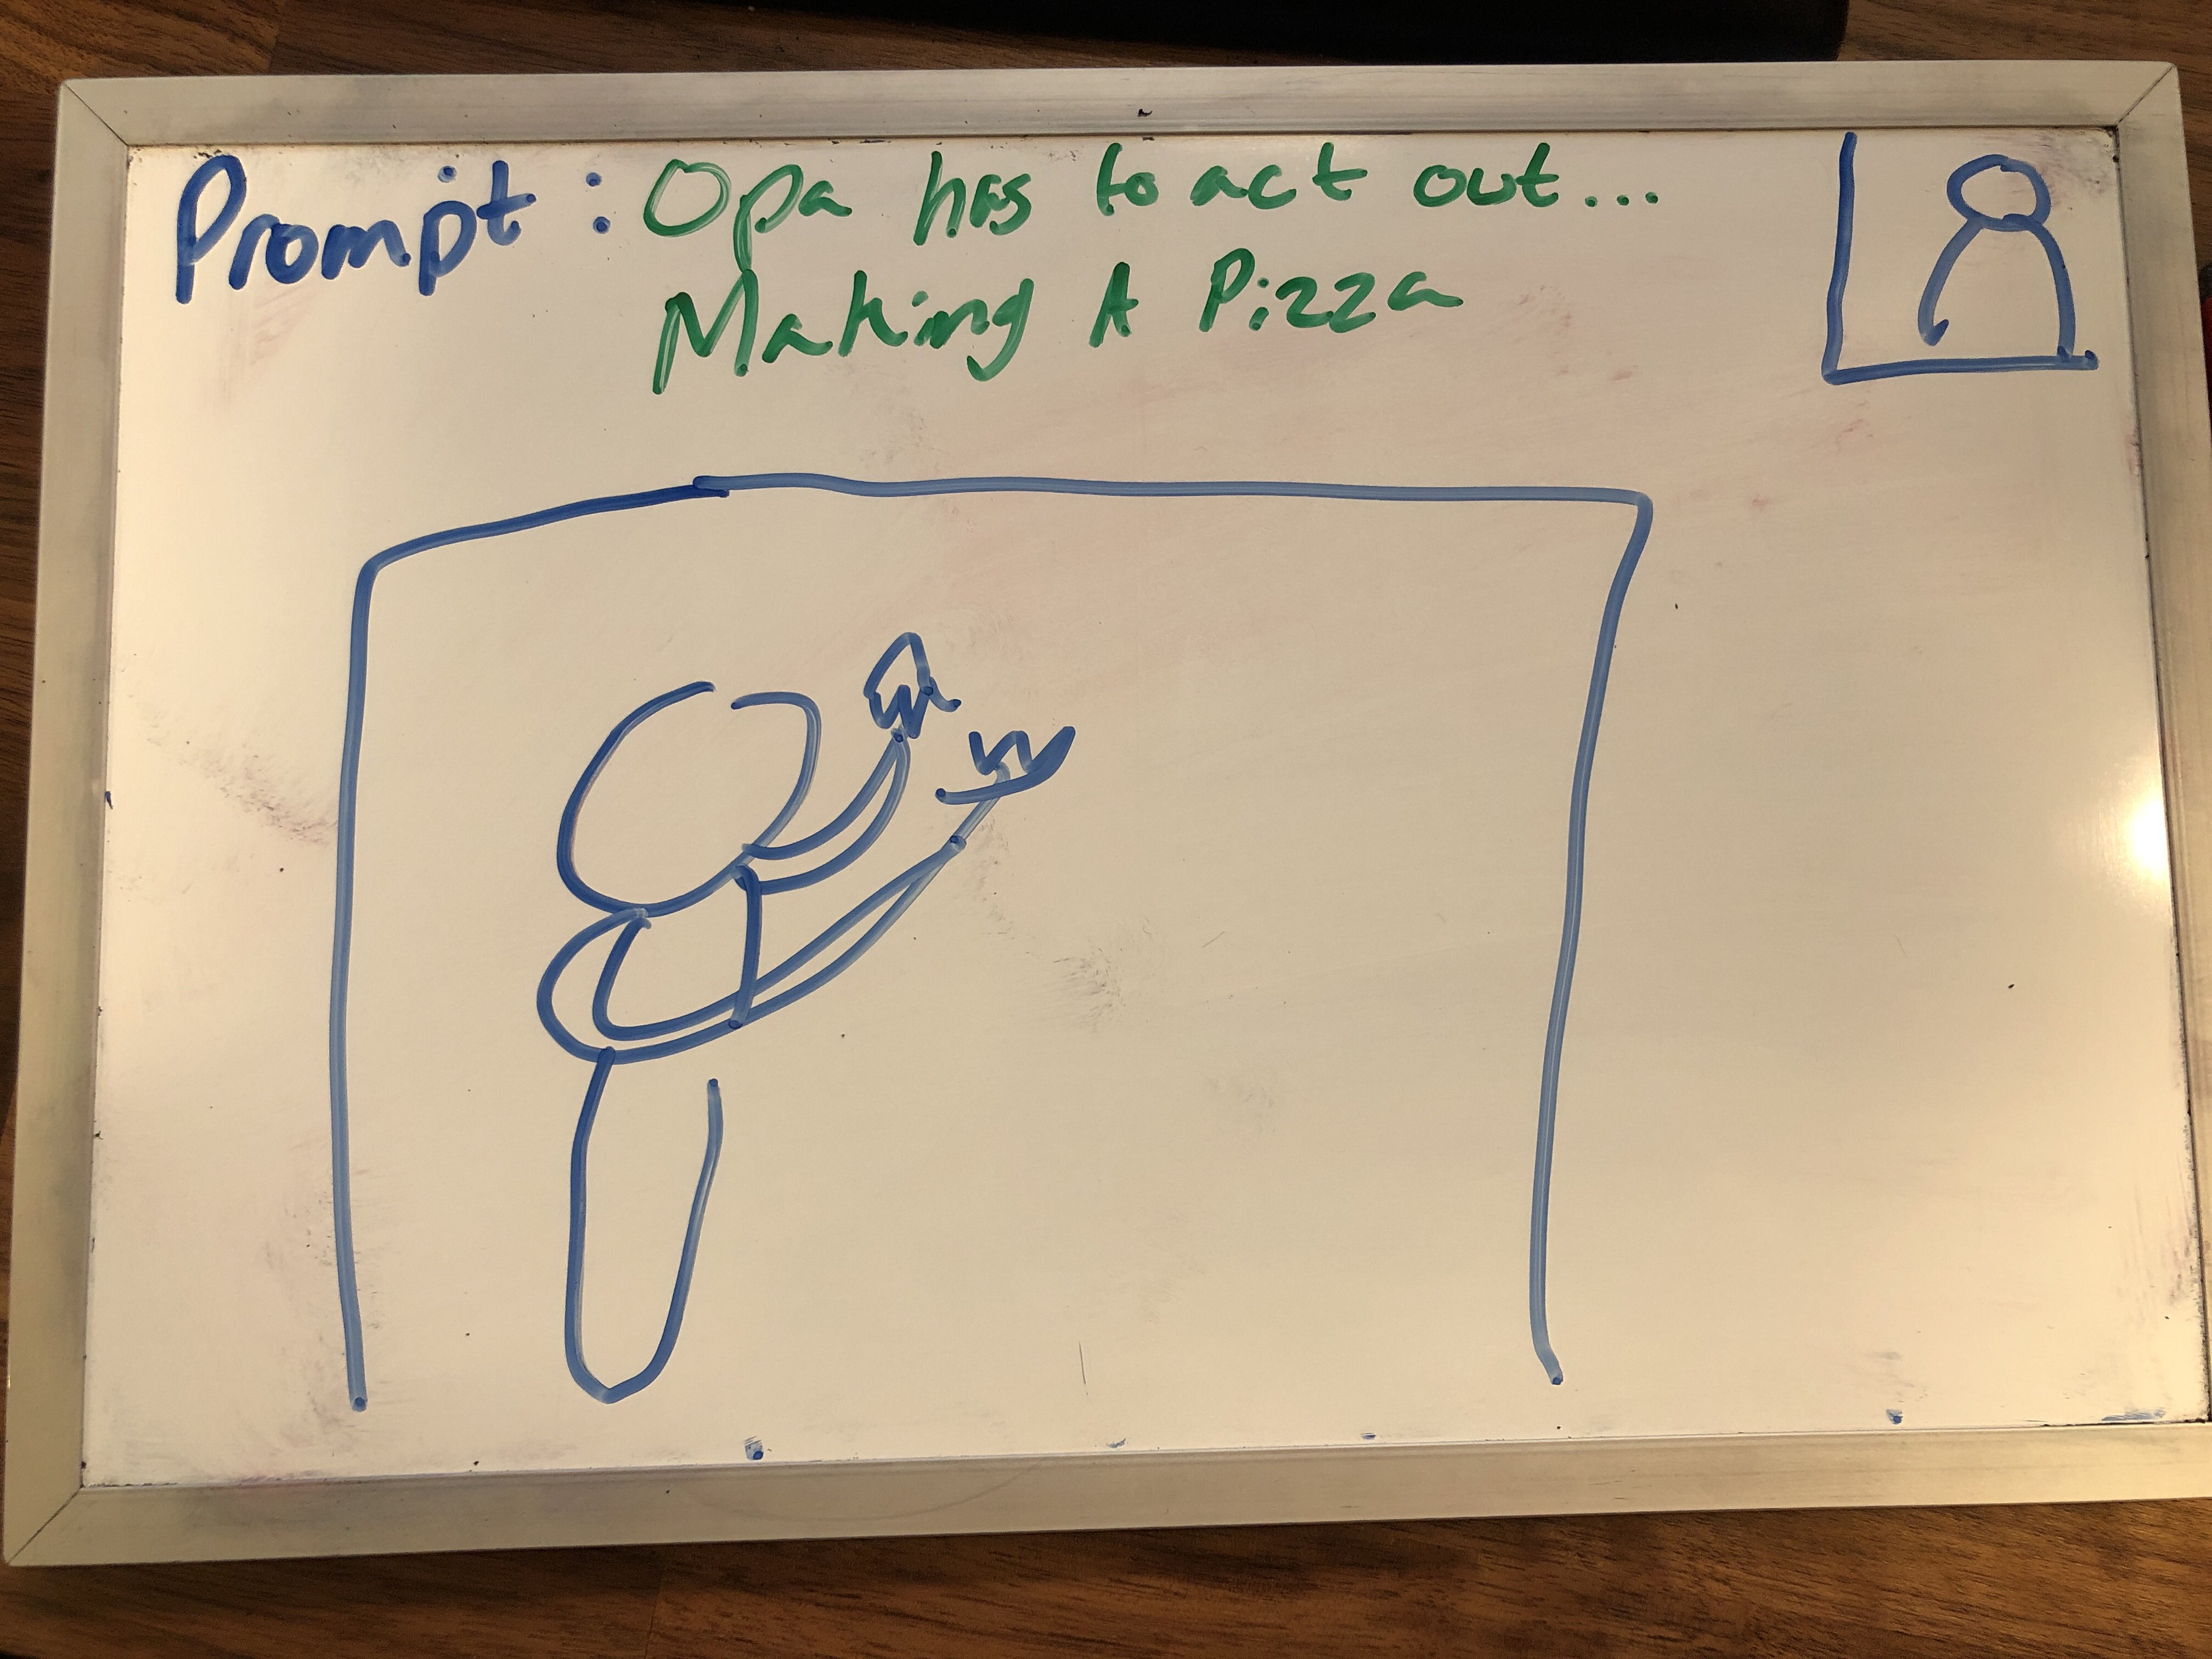 Prompt: Opa has to act out...
Making A Pizza